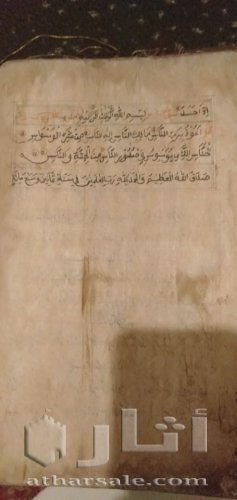 إذا حسد بسم الله الرحمن الرحيم
قل أعوذ برب الناس ملك الناس إله الناس من شر الوسواس
الخناس الذي يوسوس في صدور الناس من الجنة والناس
صدق الله العظيم والحمد لله رب العلمين في سنة
آثار
atharsale.com